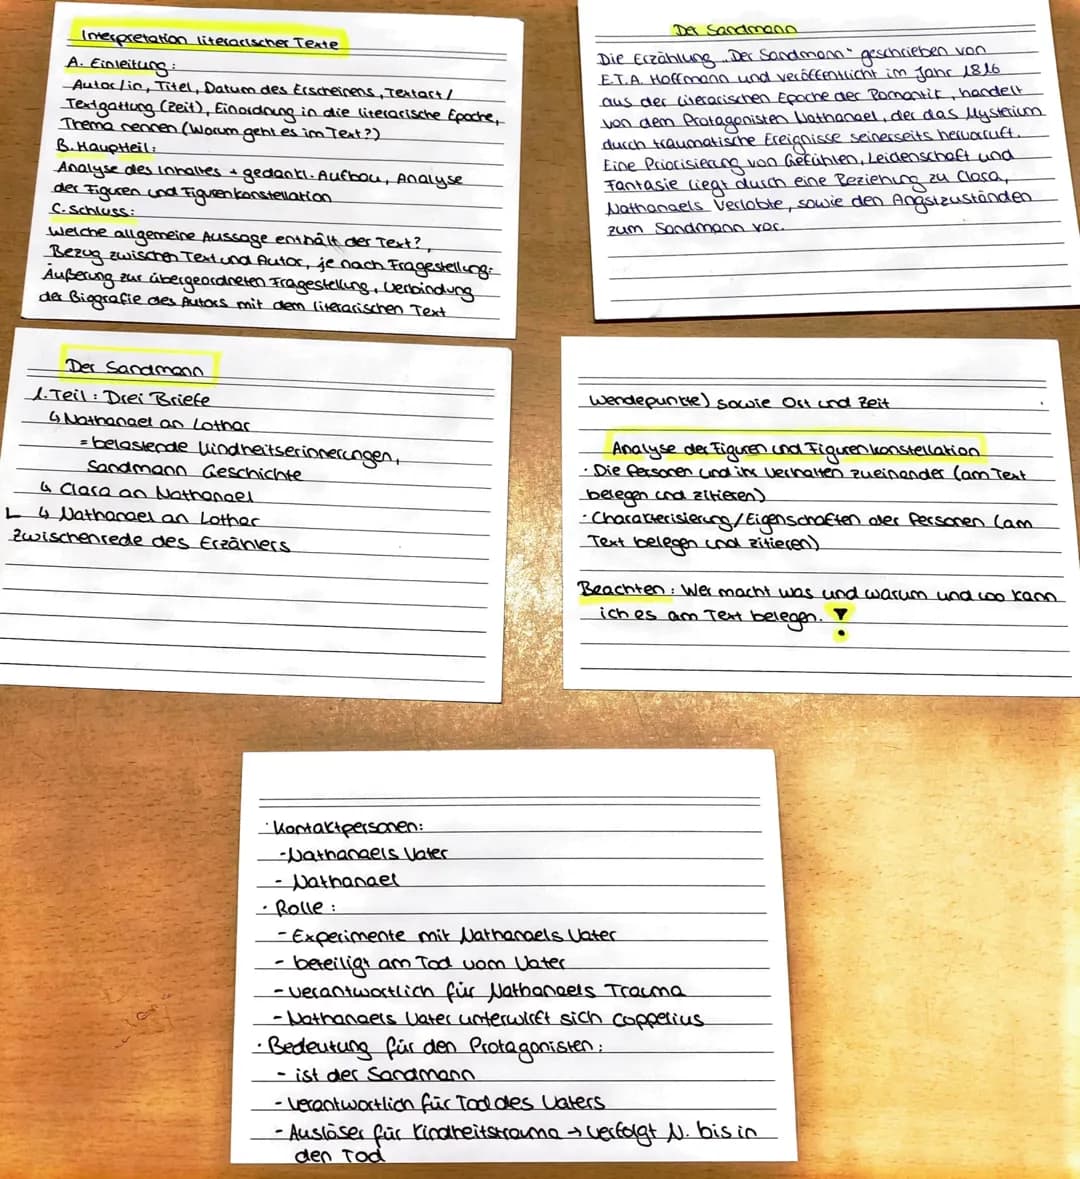 Interpretation literarischer Texte
A. Einleitung:
Autor/in, Titel, Datum des Erscheinens, Textart/
Textgattung (Zeit), Einordnung in die literarische Epoche,
Thema nennen (Worum geht es im Text?)
B. Hauptteil:
Analyse des Inhaltes + gedankl. Aufbau, Analyse
der Figuren und Figurenkonstellation
C. Schluss:
Welche allgemeine Aussage enthält der Text?,
Bezug zwischen Text und Autor, je nach Fragestellung:
Äußerung zur übergeordneten Fragestellung, Verbindung
der Biografie des Autors mit dem literarischen Text
Der Sandmann
Die Erzählung "Der Sandmann" geschrieben von
E.T.A. Hoffmann und veröffentlicht im Jahr 1816
aus der literarischen Epoche der Romantik, handelt
von dem Protagonisten Nathanael, der das Mysterium
durch traumatische Ereignisse seinerseits hervorruft.
Eine Priorisierung von Gefühlen, Leidenschaft und
Fantasie liegt durch eine Beziehung zu Clara,
Nathanaels Verlobte, sowie den Angstzuständen
zum Sandmann vor.
Der Sandmann
1. Teil: Drei Briefe
↳ Nathanael an Lothar
= belastende Kindheitserinnerungen,
Sandmann Geschichte
↳ Clara an Nathanael
↳ Nathanael an Lothar
Zwischenrede des Erzählers
Wendepunkte) sowie Ort und Zeit
Analyse der Figuren und Figurenkonstellation
· Die Personen und ihr Verhalten zueinander (am Text
belegen und zitieren)
· Charakterisierung/Eigenschaften der Personen (am
Text belegen und zitieren)
Beachten: Wer macht was und warum und wo kann
ich es am Text belegen. !
· Kontaktpersonen:
- Nathanaels Vater
- Nathanael
· Rolle:
- Experimente mit Nathanaels Vater
- beteiligt am Tod vom Vater
- verantwortlich für Nathanaels Trauma
- Nathanaels Vater unterwirft sich Coppelius
· Bedeutung für den Protagonisten:
- ist der Sandmann
- verantwortlich für Tod des Vaters
- Auslöser für Kindheitstrauma → verfolgt N. bis in
den Tod